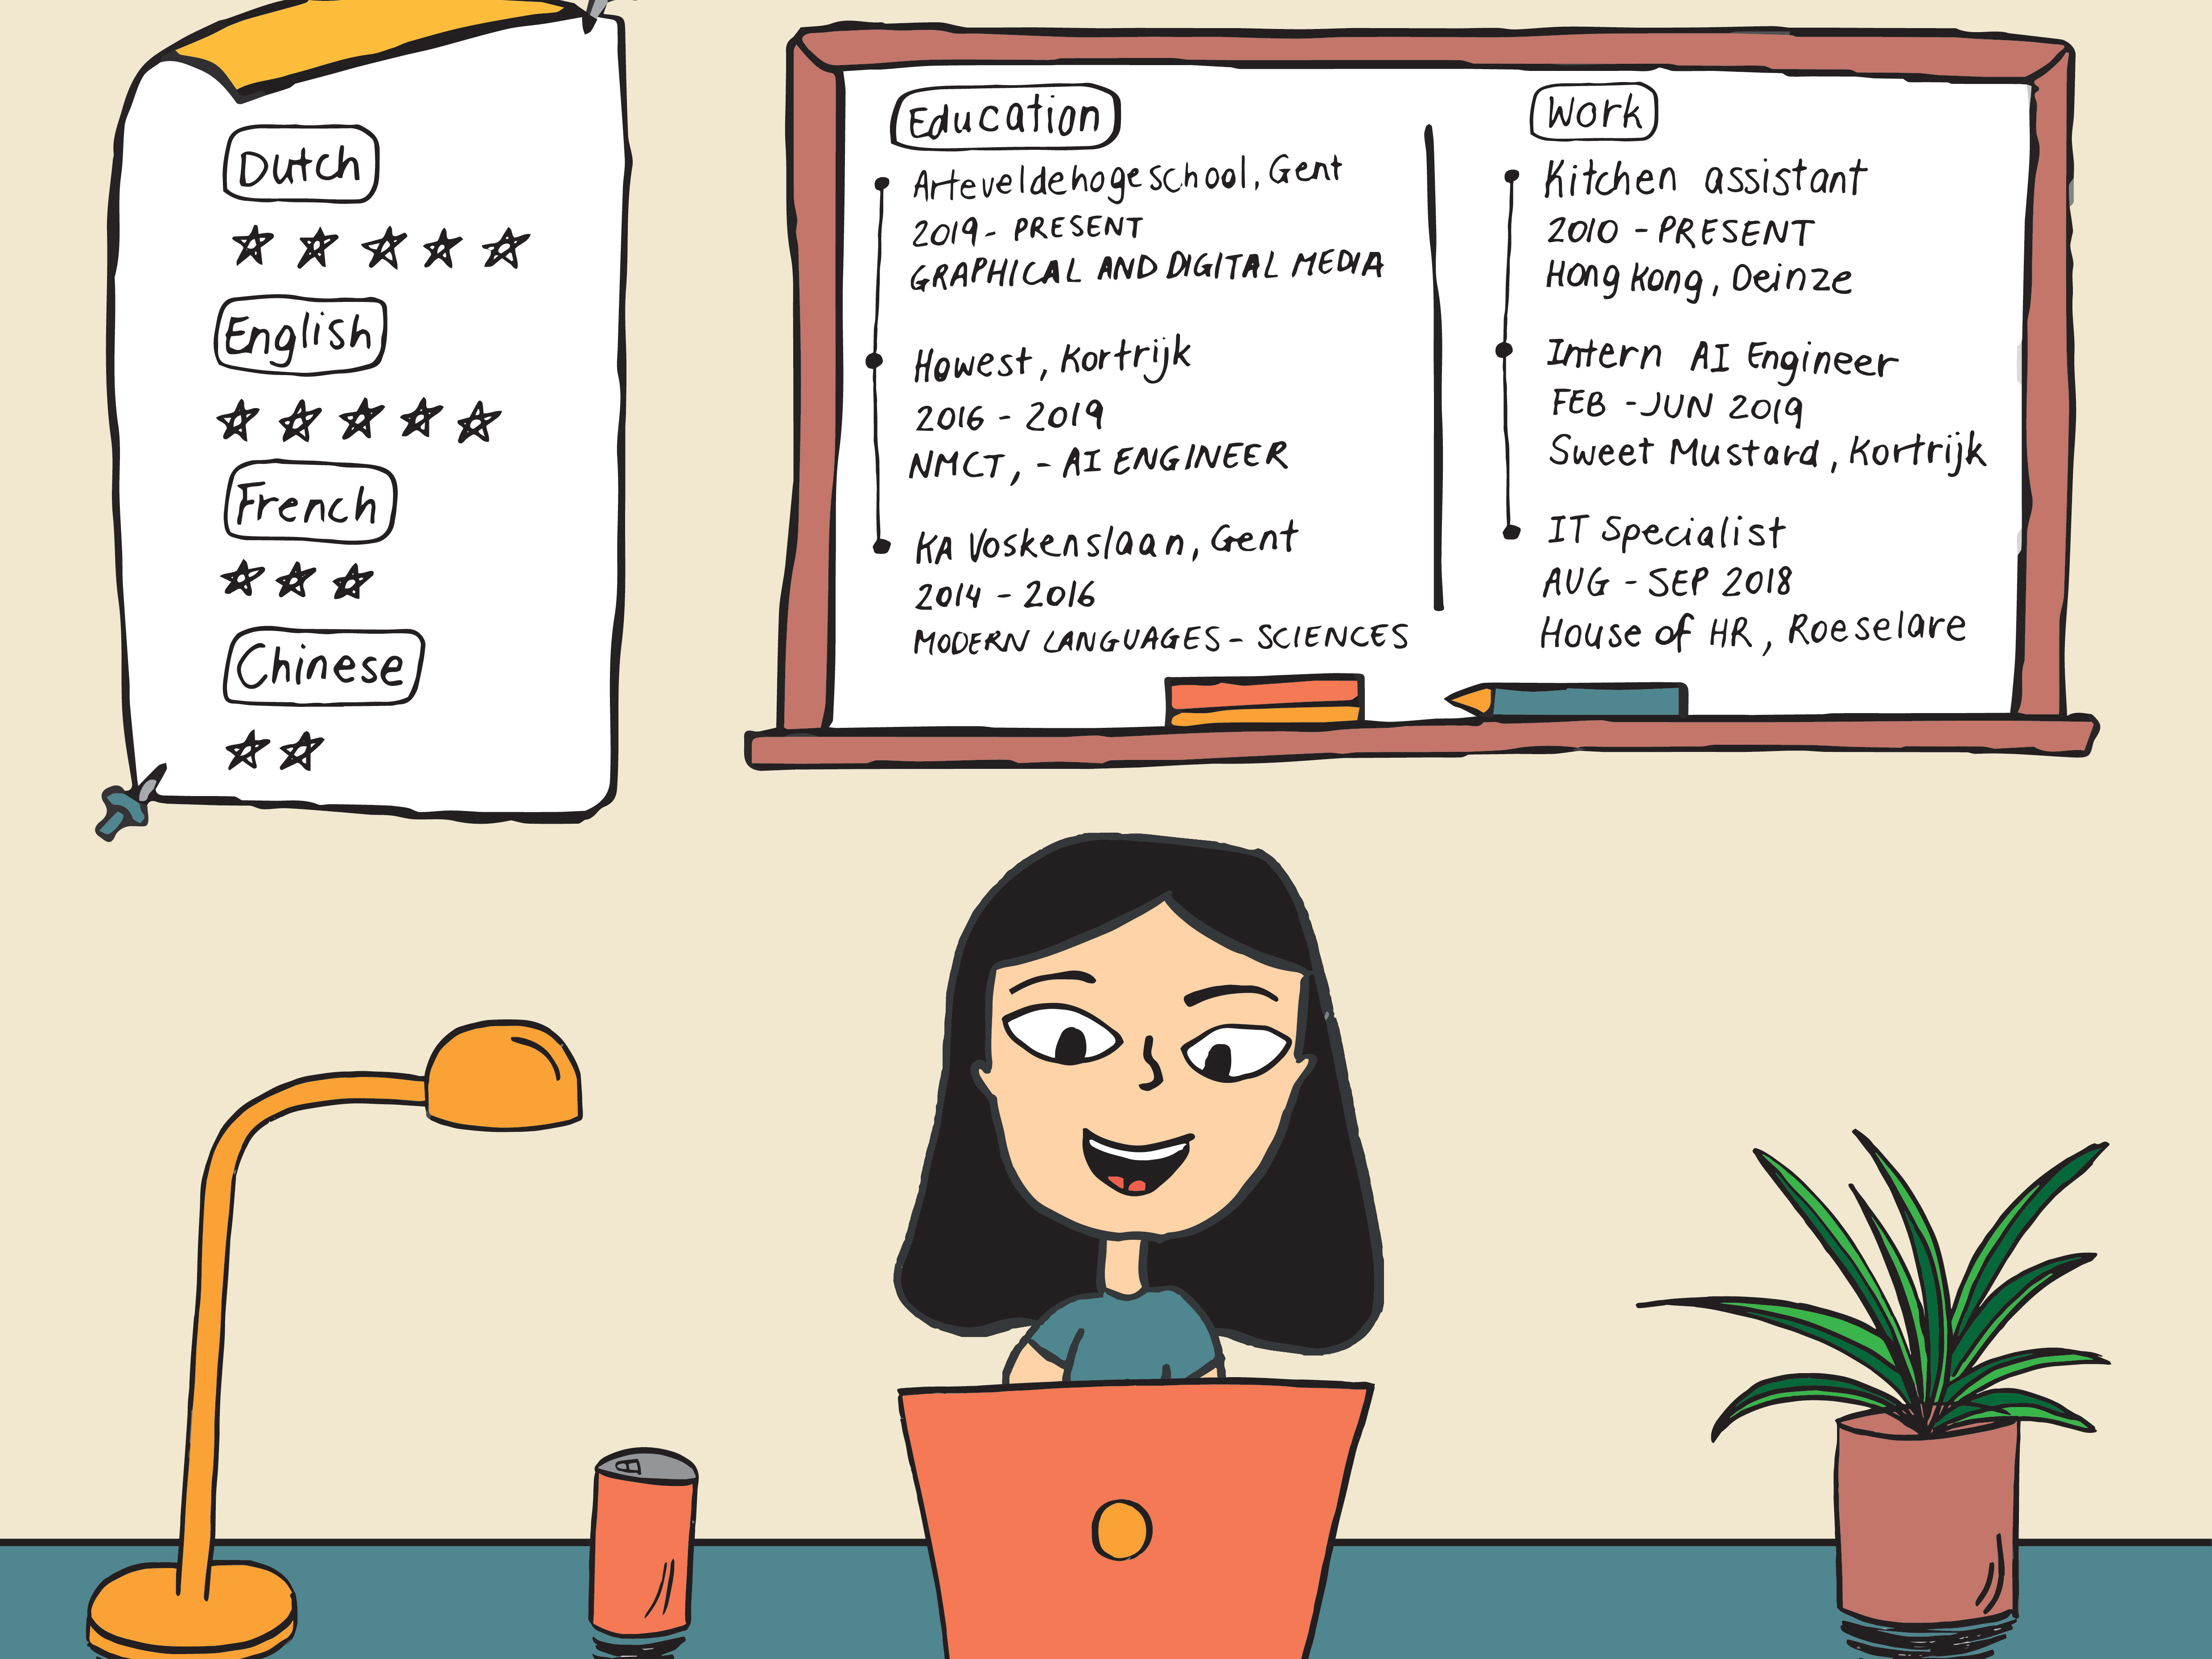 Dutch
English
French
Chinese
Education
Arteveldehogeschool, Gent
2019 - PRESENT
GRAPHICAL AND DIGITAL MEDIA
Howest, Kortrijk
2016 - 2019
NMCT, - AI ENGINEER
KA Voskenslaan, Gent
2014 - 2016
MODERN LANGUAGES - SCIENCES
Work
Kitchen assistant
2010 - PRESENT
Hong Kong, Deinze
Intern AI Engineer
FEB - JUN 2019
Sweet Mustard, Kortrijk
IT Specialist
AUG - SEP 2018
House of HR, Roeselare